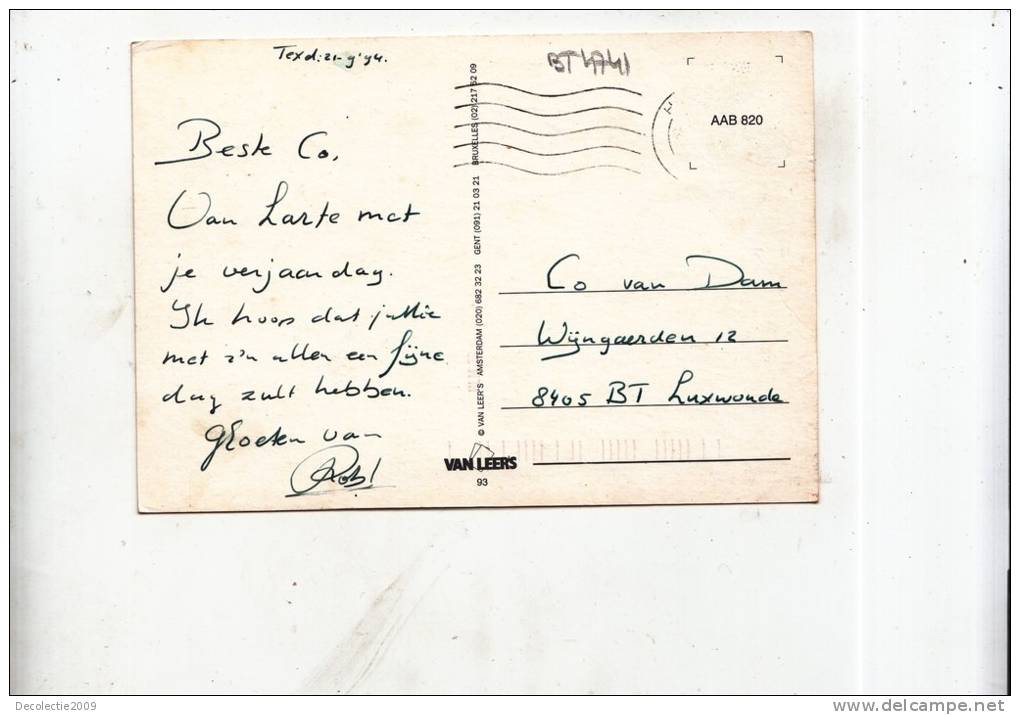 21-9'94.
BT4741
AAB 820
Beste Co,
Van harte met
je verjaardag.
Ik hoop dat jullie
met z'n allen een fijne
dag zult hebben.
Groeten van
Rob!
© VAN LEER'S AMSTERDAM (020) 682 32 23 GENT (091) 21 03 21 BRUXELLES (02) 217 52 09
Co van Dam
Wijngaerden 12
8405 BT Luxwoude
VAN LEER'S
93
Decolectie2009
www.delcampe.net